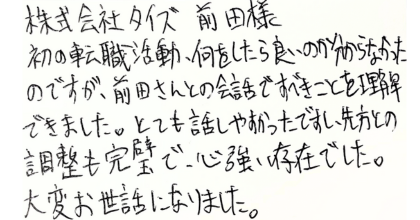 株式会社タイズ 前田様
初の転職活動、何をしたら良いのか分からなかった
のですが、前田さんとの会話ですべきことを理解
できました。とても話しやすかったですし、先方との
調整も完璧で、心強い存在でした。
大変お世話になりました。